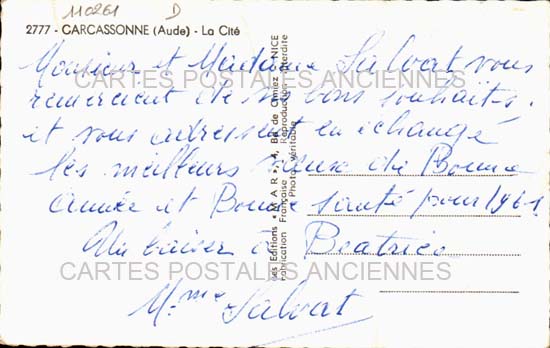 110261 D
2777 - CARCASSONNE (Aude) - La Cité
Monsieur et Madame Salvat vous
remercient de vos bons souhaits.
et vous adressent en échange
les meilleurs vœux de Bonne
année et Bonne santé pour 1961
Un baiser à Beatrice
Mme Salvat
Les Editions "MAR", 4, Bd de Cimiez - NICE
Fabrication Française - Reproduction Interdite
Photo véritable
CARTES POSTALES ANCIENNES
CARTES POSTALES ANCIENNES